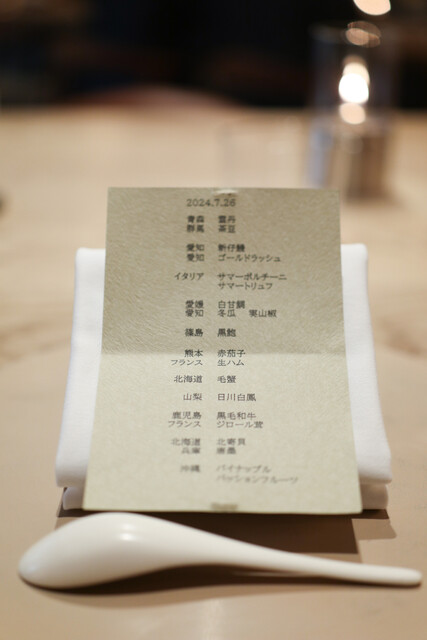 2024.7.26
青森 雲丹
群馬 茶豆
愛知 新仔鰻
愛知 ゴールドラッシュ
イタリア サマーポルチーニ
サマートリュフ
愛媛 白甘鯛
愛知 冬瓜 実山椒
篠島 黒鮑
熊本 赤茄子
フランス 生ハム
北海道 毛蟹
山梨 日川白鳳
鹿児島 黒毛和牛
フランス ジロール茸
北海道 北寄貝
兵庫
沖縄 パイナップル
パッションフルーツ